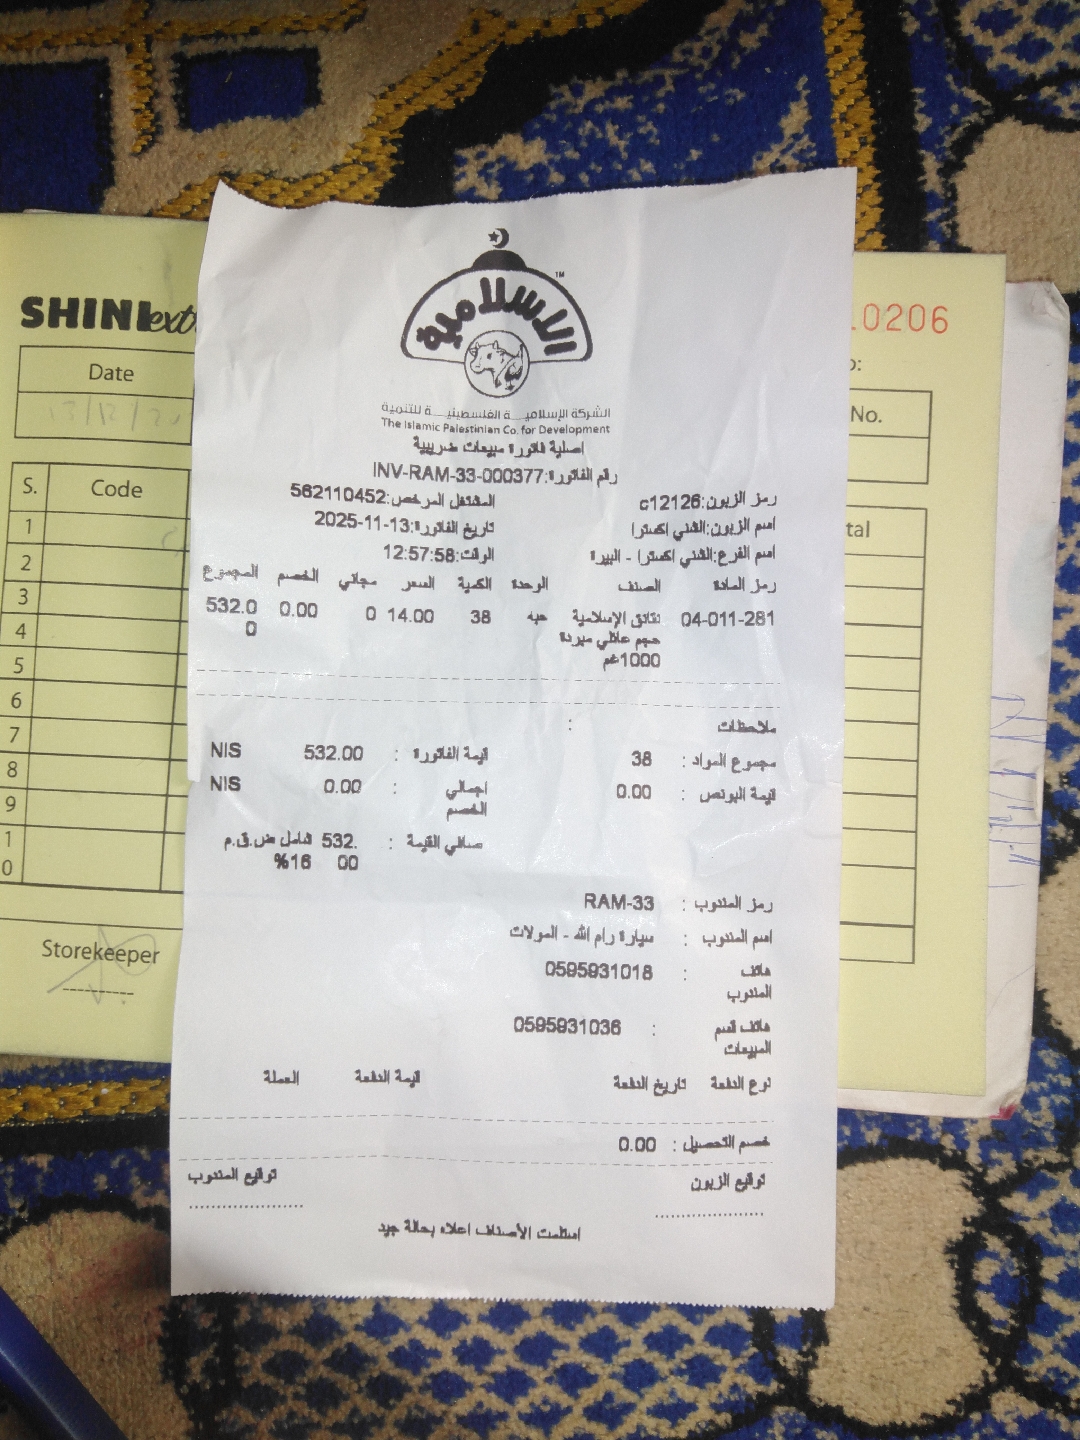 SHINI ext
0206
Date
13/12/20
No.
S. Code
tal
1
2
3
4
5
6
7
8
9
10
Storekeeper
الاسلامية
TM
الشركة الإسلامية الفلسطينية للتنمية
The Islamic Palestinian Co. for Development
اصلية فاتورة مبيعات ضريبية
رقم الفاتورة:INV-RAM-33-000377
رمز الزبون:c12126 المشتغل المرخص:562110452
اسم الزبون:الشني اكسترا تاريخ الفاتورة:2025-11-13
اسم الفرع:الشني اكسترا - البيرة الوقت:12:57:58
رمز المادة الصنف الوحدة الكمية السعر مجاني الخصم المجموع
04-011-281 نقانق الإسلامية حبه 38 14.00 0 0.00 532.0
حجم عائلي مبردة 0
1000غم
ملاحظات :
مجموع المواد : 38 قيمة الفاتورة : 532.00 NIS
قيمة البونص : 0.00 اجمالي : 0.00 NIS
الخصم
صافي القيمة : 532. شامل ض.ق.م
00 16%
رمز المندوب : RAM-33
اسم المندوب : سيارة رام الله - المولات
هاتف : 0595931018
المندوب
هاتف قسم : 0595931036
المبيعات
نوع الدفعة تاريخ الدفعة قيمة الدفعة العملة
خصم التحصيل : 0.00
توقيع الزبون توقيع المندوب
استلمت الأصناف اعلاه بحالة جيد